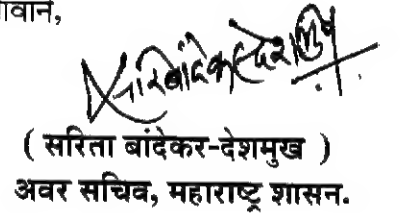 ावाने,
सरिबांदेकरदेशमुख
( सरिता बांदेकर-देशमुख )
अवर सचिव, महाराष्ट्र शासन.